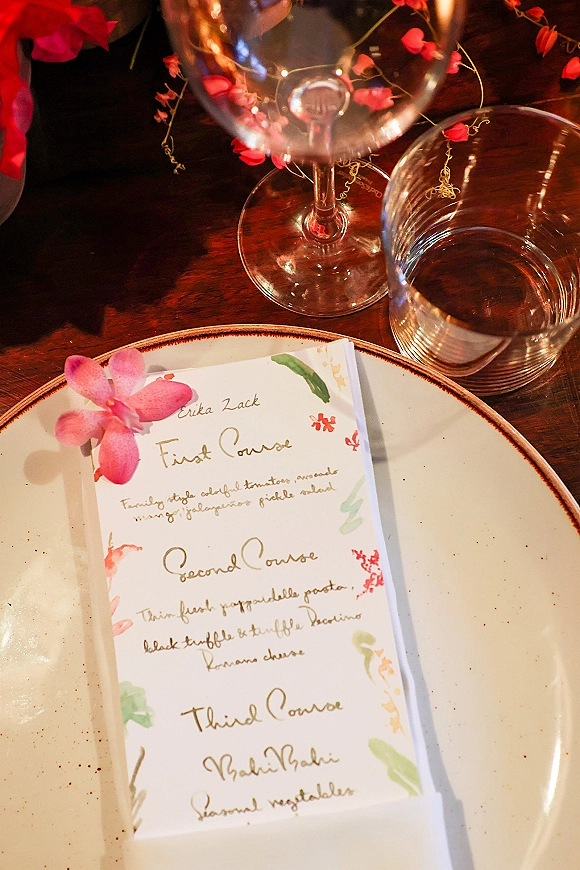 Erika Zack
First Course
Family style colorful tomatoes, avocado
mango, jalapeños pickle salad
Second Course
Thin fresh pappardelle pasta,
black truffle & truffle Pecorino
Romano cheese
Third Course
BahiBahi
Seasonal vegetables